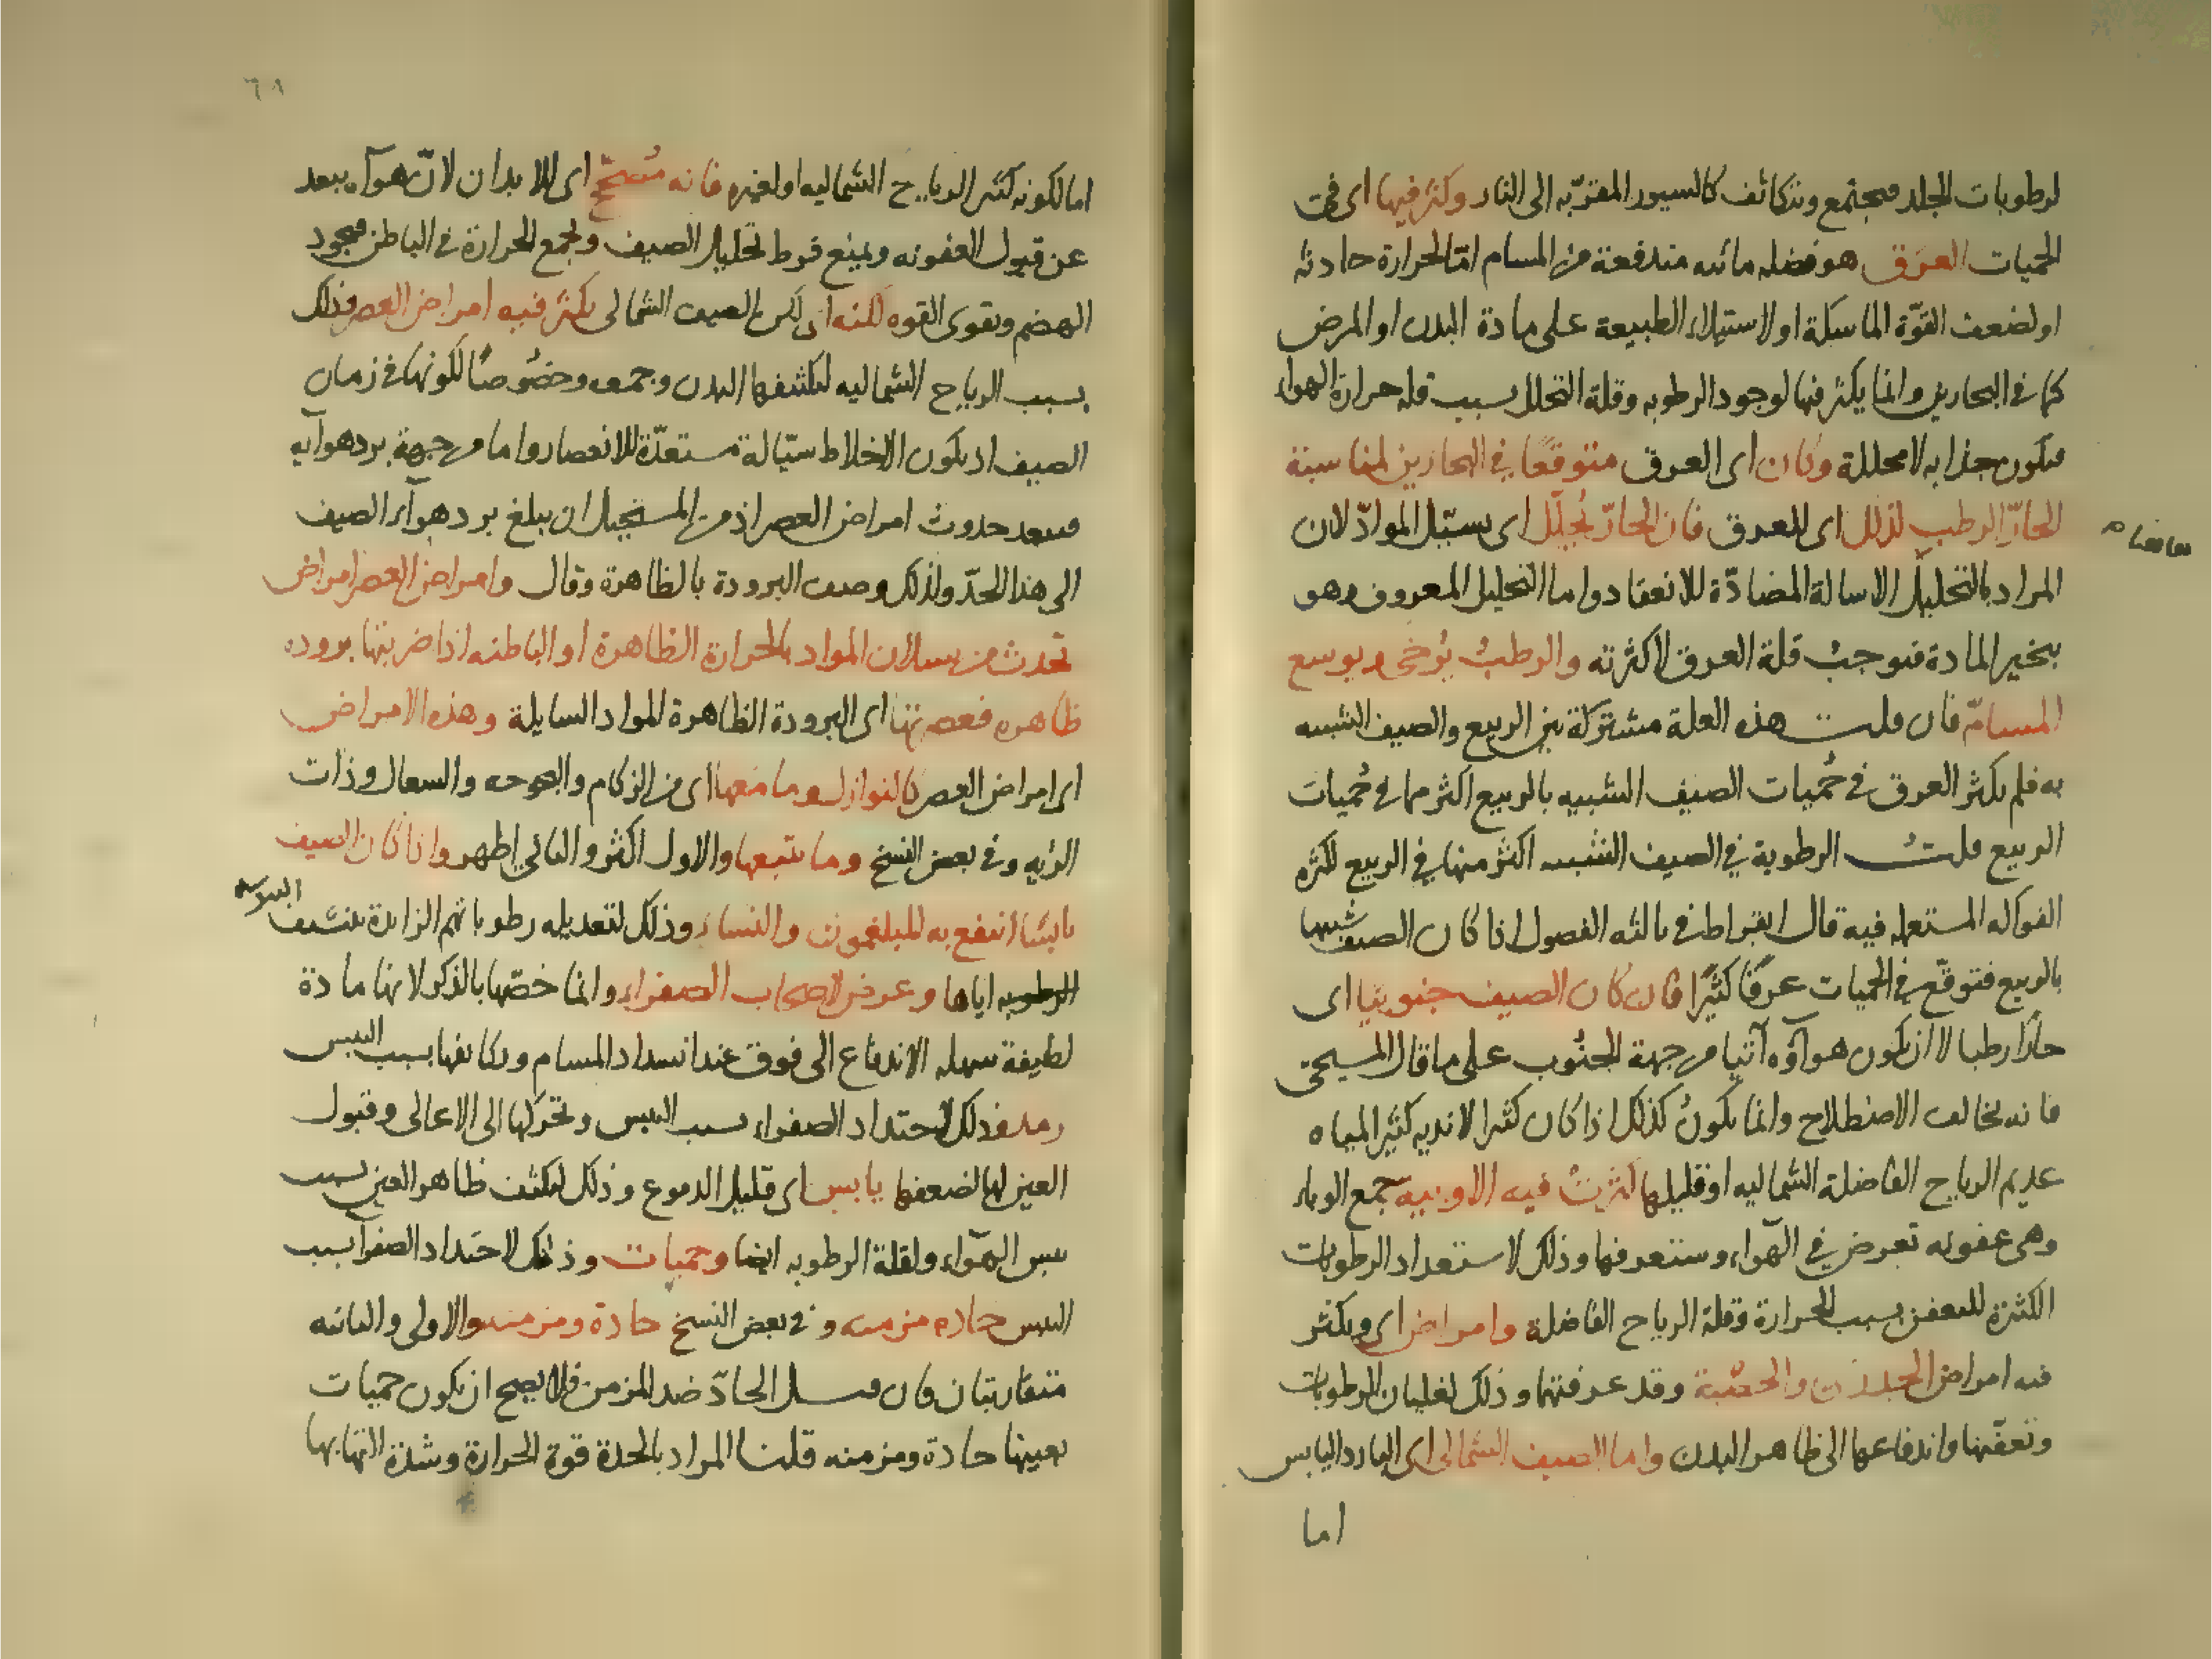 لرطوبات الجلد فيجتمع وتتكاثف كالسيور المقرّبه الى النار وكثر فيها اى فى
الحميات العرق هو فضله مائيه مندفعة من المسام امّا لحرارة حادثه
او لضعف القوّة الماسكة او لاستيلاء الطبيعة على مادة البدن او المرض
كما فى البحارين وانما يكثر فيها لوجود الرطوبه وقلة التحلل بسبب قله حرارة الهواء
فيكون جذابه لا محللة وكان اى العرق متوقعًا فى البحارين لمناسبة
الحارّ الرطب لذلك اى للعرق فان الحارّ يُحلّل اى يسيّل الموادّ لان
المراد بالتحليل الاسالة المضادّة للانعقاد واما التحليل المعروف وهو
تبخير المادة فيوجب قلة العرق لا كثرته والرطب يُرخى ويوسع
المسامّ فان قلت هذه العلة مشتركة بين الربيع والصيف الشبيه
به فلم يكثر العرق فى حُميات الصيف الشبيه بالربيع اكثر مما فى حُميات
الربيع قلت الرطوبة فى الصيف الشبيه اكثر منها فى الربيع لكثره
الفواكه المستعمله فيه قال ابقراط فى ثالثه الفصول اذا كان الصيف شبيها
بالربيع فتوقّع فى الحميات عرقًا كثيرًا فان كان الصيف جنوبيّا اى
حارًّا رطبا لا ان يكون هوآؤه آتيا من جهة الجنُوب على ما قال المسيحى
فانه يخالف الاصطلاح وانما يكونُ كذلك اذا كان كثير الانديه كثير المياه
عديم الرياح الفاضلة الشماليه او قليلها كثرت فيه الاوبيه جمع الوباء
وهى عفونه تعرض فى الهوآء وستعرفها وذلك لاستعداد الرطوبات
الكثيرة للتعفن بسبب الحرارة وقلة الرياح الفاضلة وامراض اى ويكثر
فيه امراض الجدرى والحصبة وقد عرفتهما وذلك لغليان الرطوبات
وتعفّنها واندفاعها الى ظاهر البدن واما الصيف الشمالى اى البارد اليابس
اما
٦٨
اما لكونه كثير الرياح الشماليه او لغيره فانه مُصحّح اى للابدان لانّ هوآءه يبعد
عن قبول العفونه ويمنع فرط تحليل الصيف ولجمع الحرارة فى الباطن فيجود
الهضم ويقوى القوه لكنه اى لكن الصيف الشمالى يكثر فيه امراض العصر وذلك
بسبب الرياح الشماليه لتكثيفها البدن وجمعه وخصُوصًا لكونها فى زمان
الصيف اذ يكون الاخلاط سيّالة مستعدّة للانعصار واما من جهة برد هوآيه
فيبعد حدوث امراض العصر اذ من المستحيل ان يبلغ برد هوآء الصيف
الى هذا الحدّ ولذلك وصف البرودة بالظاهرة وقال وامراض العصر امراض
تحدث من سيلان المواد بالحرارة الظاهرة او الباطنه اذا ضربتها بروده
ظاهره فعصرتها اى البرودة الظاهرة المواد السايلة وهذه الامراض
اى امراض العصر كالنوازل وما معها اى من الزكام والبحوحه والسعال وذات
الريه وفى بعض النسخ وما يتبعها والاول اكثر والثانى اظهر واذا كان الصيف
يابسًا انتفع به المبلغمون والنساء وذلك لتعديله رطوباتهم الزايدة بتنشيف
الرطوبه اياها وعرض لاصحاب الصفراء وانما خصّها بالذكر لانها مادة
لطيفة سهله الاندفاع الى فوق عند انسداد المسام وتكاثفها بسبب اليبس
رمد وذلك لاحتداد الصفراء بسبب اليبس وتحركها الى الاعالى وقبول
العين لها لضعفها يابس اى قليل الدموع وذلك لتكثف ظاهر العين بسبب
يبس الهوآء ولقلة الرطوبه ايضا وحميات وذلك لاحتداد الصفرآ بسبب
اليبس حاده مزمنه وفى بعض النسخ حادة ومزمنه والاولى والثانيه
متقاربتان فان قيل الحادّ ضد المزمن فلا يصح ان يكون حميات
بعينها حادة ومزمنه قلنا المراد بالحدة قوة الحرارة وشدة التهابها